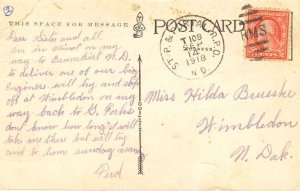 THIS SPACE FOR MESSAGE
POST CARD
Dear Sister and all.
Am in Minot on my
way to Benedict N.D.
to deliver one of our big
engines will try and stop
off at Wimbledon on my
way back to G. Forks
dont know how long it will
take me
but will try and
be home sunday
Fred
ST. P. &
R.P.O.
1918
N.D.
RMS
Miss Hilda Brueske
Wimbledon
N. Dak.